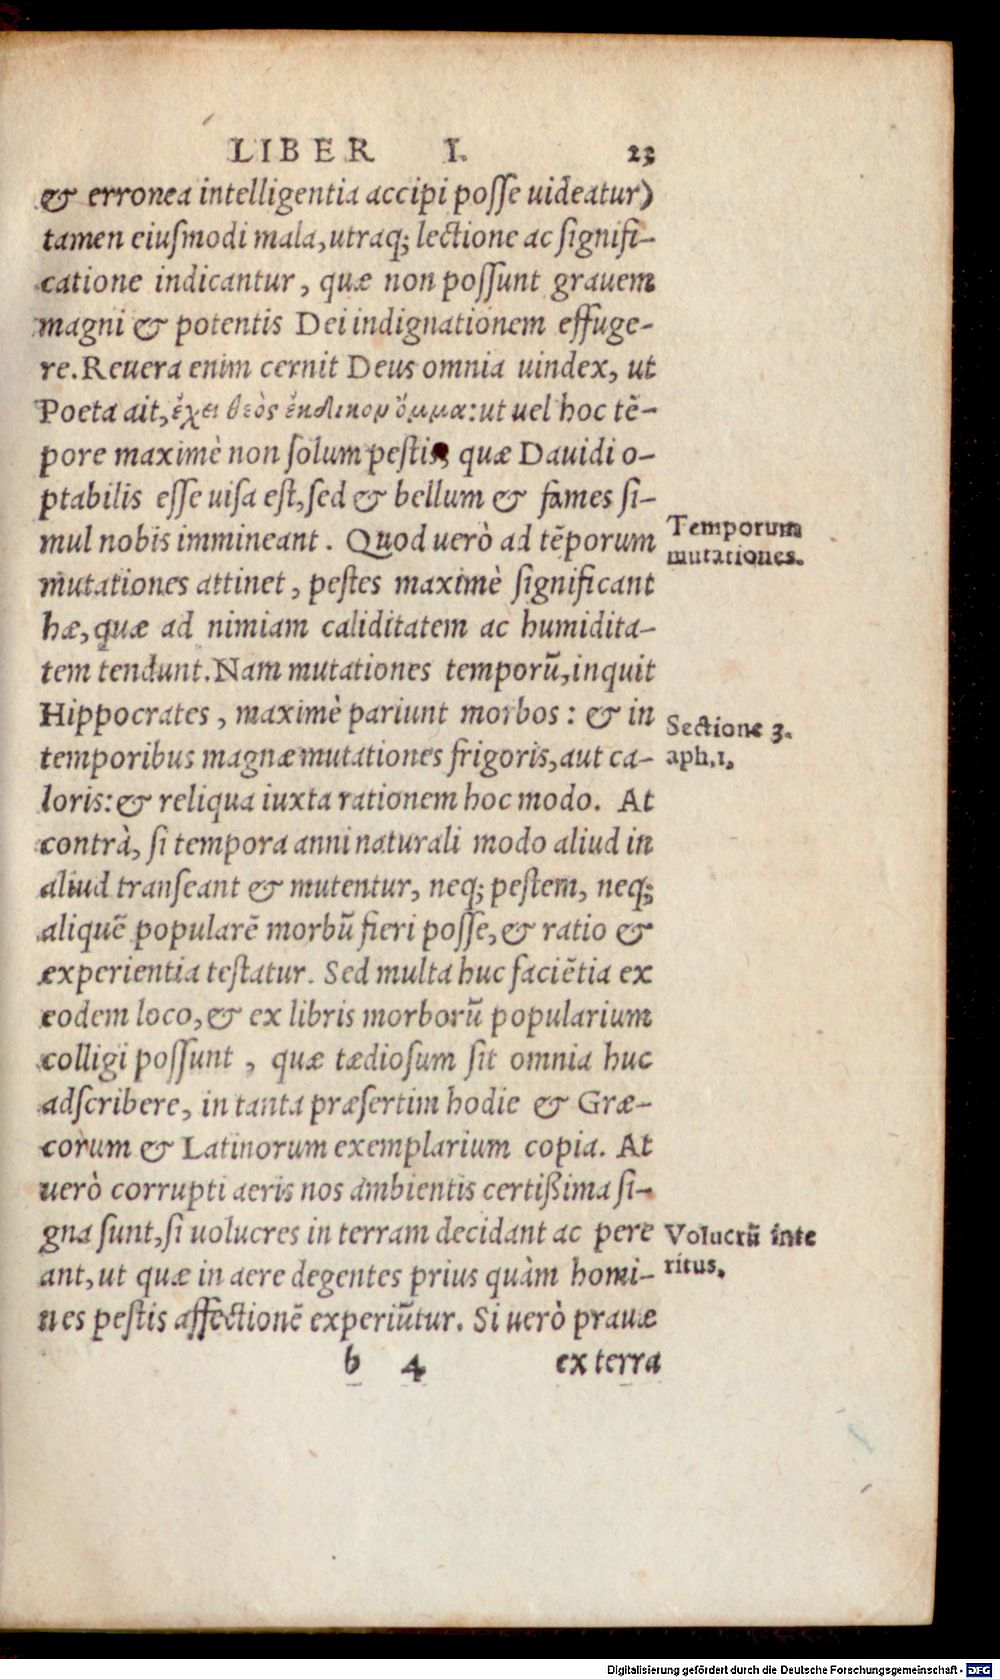 LIBER I. 23
& erronea intelligentia accipi posse uideatur)
tamen eiusmodi mala, utraq; lectione ac signifi-
catione indicantur, quæ non possunt grauem
magni & potentis Dei indignationem effuge-
re. Reuera enim cernit Deus omnia uindex, ut
Poeta ait, ἔχει θεὸς ἔκδικον ὄμμα: ut uel hoc tē-
pore maximè non solum pestis, quæ Dauidi o-
ptabilis esse uisa est, sed & bellum & fames si-
mul nobis immineant. Quod uerò ad tēporum
Temporum
mutationes.
mutationes attinet, pestes maximè significant
hæ, quæ ad nimiam caliditatem ac humidita-
tem tendunt. Nam mutationes temporū, inquit
Hippocrates, maximè pariunt morbos: & in
Sectione 3.
aph.1.
temporibus magnæ mutationes frigoris, aut ca-
loris: & reliqua iuxta rationem hoc modo. At
contrà, si tempora anni naturali modo aliud in
aliud transeant & mutentur, neq; pestem, neq;
aliquē popularē morbū fieri posse, & ratio &
experientia testatur. Sed multa huc faciētia ex
eodem loco, & ex libris morborū popularium
colligi possunt, quæ tædiosum sit omnia huc
adscribere, in tanta præsertim hodie & Græ-
corum & Latinorum exemplarium copia. At
uerò corrupti aeris nos ambientis certißima si-
gna sunt, si uolucres in terram decidant ac pere
Volucrū inte
ritus.
ant, ut quæ in aere degentes prius quàm homi-
nes pestis affectionē experiūtur. Si uerò prauæ
b 4 ex terra
Digitalisierung gefördert durch die Deutsche Forschungsgemeinschaft - DFG